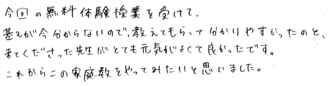 今回の無料体験授業を受けて、
基本が今分からないので、教えてもらって分かりやすかったのと、
来てくださった先生がとても元気がよくて良かったです。
これからこの家庭教をやってみたいと思いました。